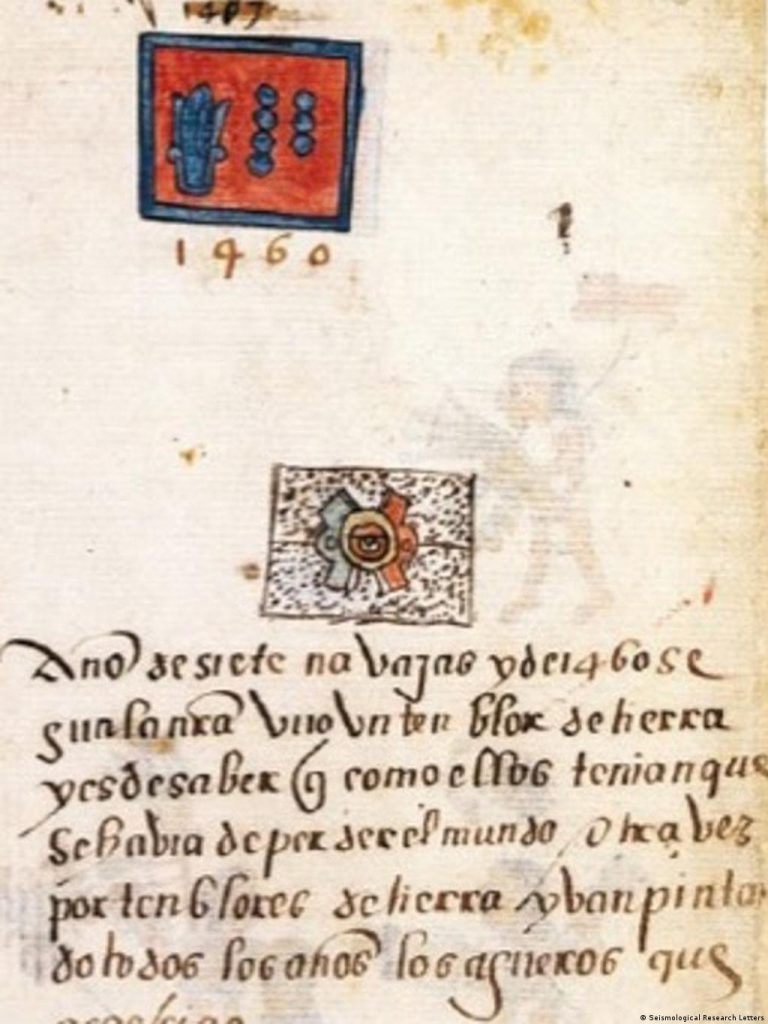 1460
Año de siete navajas y de 1460 se
gun la nra vuo vn tenblor de tierra
y es de saber q como ellos tenian que
se habia de perder el mundo otra vez
por tenblores de tierra y van pintan
do todos los años los agueros que
© Seismological Research Letters